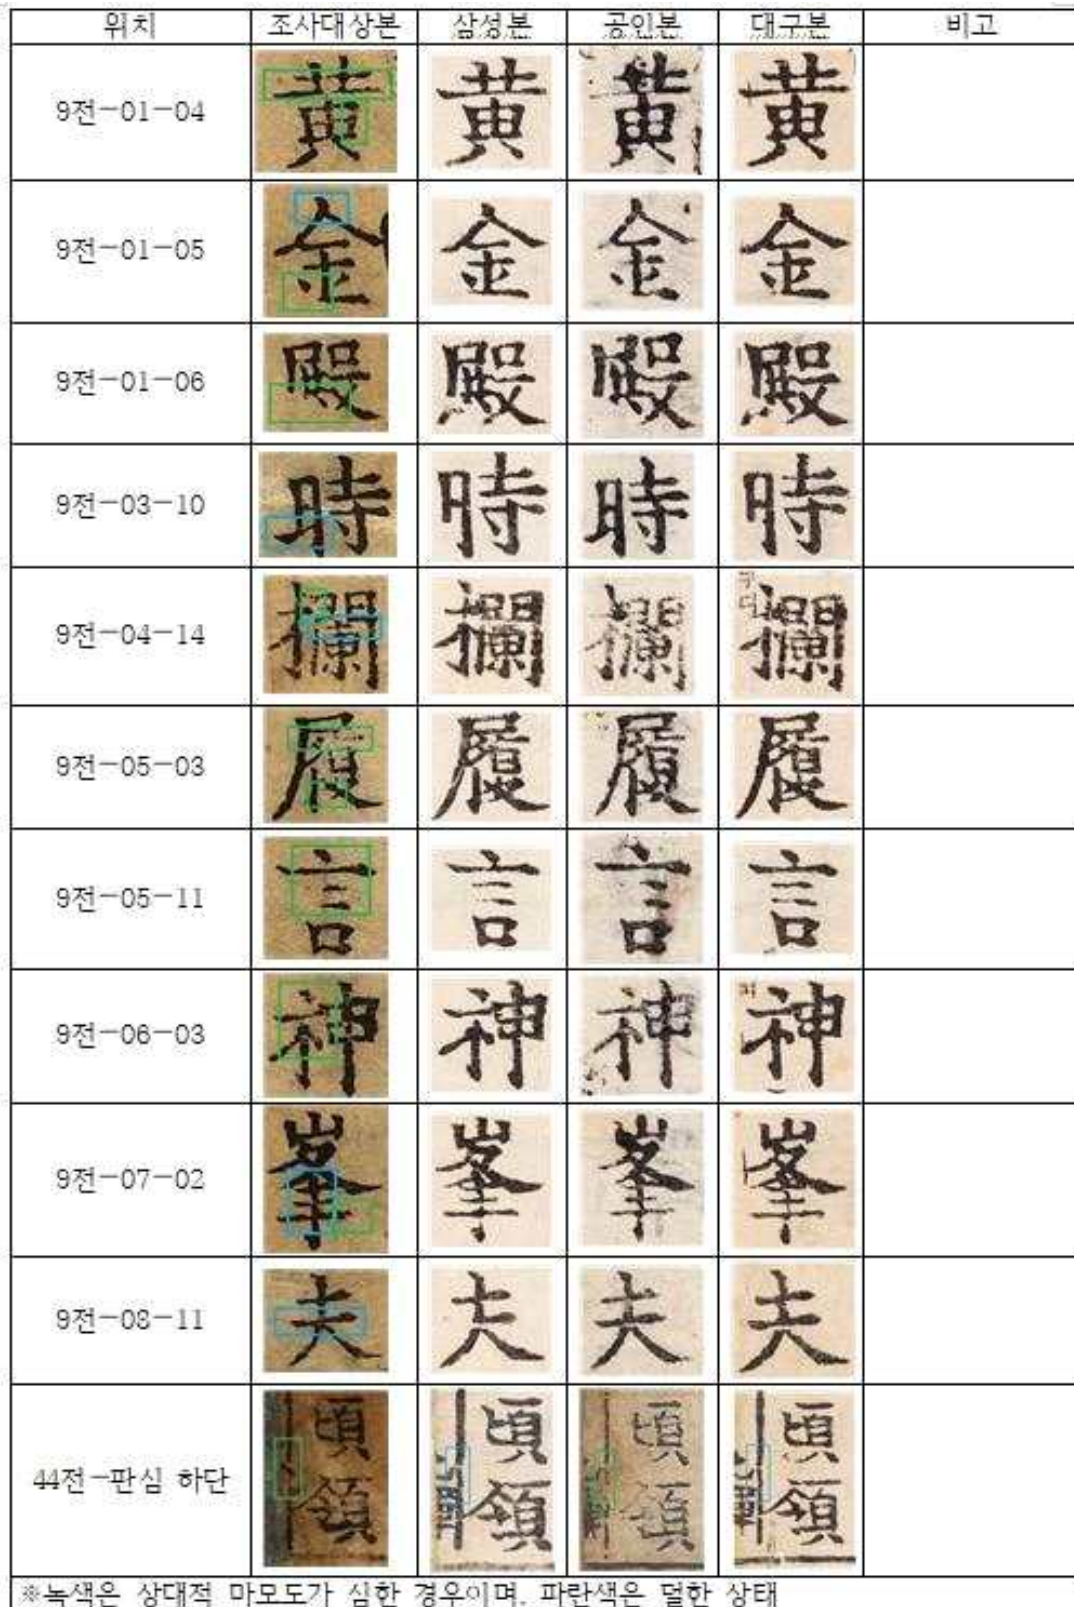 위치 조사대상본 삼성본 공인본 대구본 비고
9전-01-04 黄 黄 黄 黄
9전-01-05 金 金 金 金
9전-01-06 殿 殿 殿 殿
9전-03-10 時 時 時 時
9전-04-14 攔 攔 攔 攔
9전-05-03 履 履 履 履
9전-05-11 言 言 言 言
9전-06-03 神 神 神 神
9전-07-02 峯 峯 峯 峯
9전-08-11 夫 夫 夫 夫
44전-판심 하단 頃 頃 頃 頃
領 領 領 領
※녹색은 상대적 마모도가 심한 경우이며, 파란색은 덜한 상태